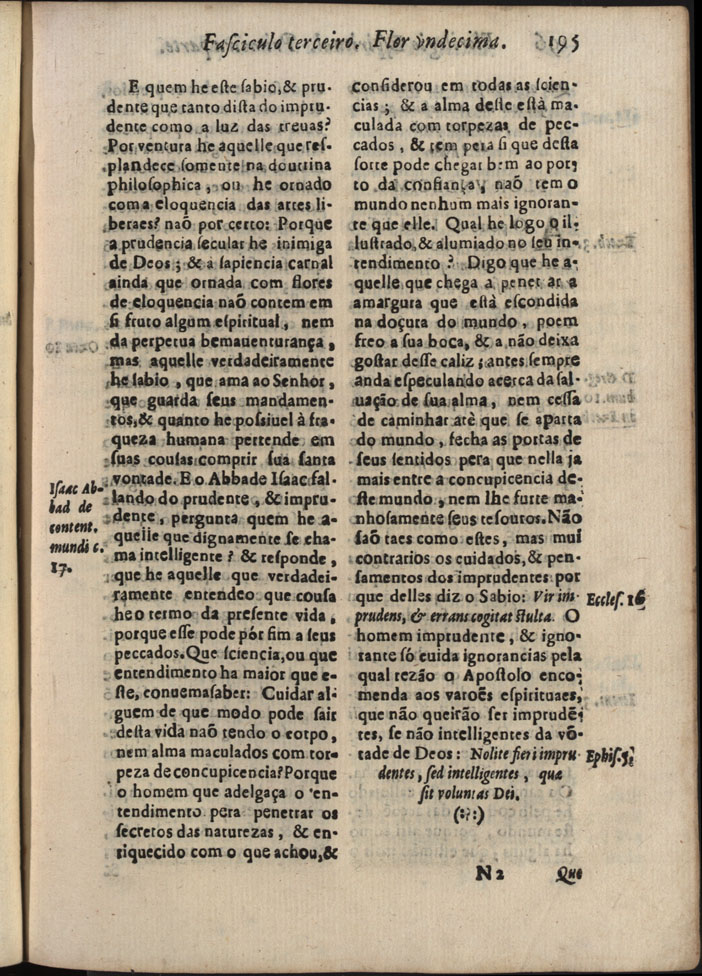 Fasciculo terceiro. Flor vndecima. 195
E quem he este sabio, & pru-
dente que tanto dista do impru-
dente como a luz das treuas?
Por ventura he aquelle que res-
plandece somente na doutrina
philosophica, ou he ornado
com a eloquencia das artes li-
beraes? naõ por certo: Porque
a prudencia secular he inimiga
de Deos; & a sapiencia carnal
ainda que ornada com flores
de eloquencia naõ contem em
si fruto algum espiritual, nem
da perpetua bemauenturança,
mas aquelle verdadeiramente
he sabio, que ama ao Senhor,
que guarda seus mandamen-
tos, & quanto he possiuel à fra-
queza humana pertende em
suas cousas comprir sua santa
vontade. E o Abbade Isaac fal-
lando do prudente, & impru-
dente, pergunta quem he a-
quelle que dignamente se cha-
ma intelligente? & responde,
que he aquelle que verdadei-
ramente entendeo que cousa
he o termo da presente vida,
porque esse pode pór fim a seus
peccados. Que sciencia, ou que
entendimento ha maior que e-
ste, conuem a saber: Cuidar al-
guem de que modo pode sair
desta vida naõ tendo o corpo,
nem alma maculados com tor-
peza de concupicencia? Porque
o homem que adelgaça o en-
tendimento pera penetrar os
secretos das naturezas, & en-
riquecido com o que achou, &
Isaac Ab-
bad de
content.
mundi c.
17.
considerou em todas as scien-
cias; & a alma deste està ma-
culada com torpezas de pec-
cados, & tem pera si que desta
sorte pode chegar bem ao por-
to da confiança, naõ tem o
mundo nenhum mais ignoran-
te que elle. Qual he logo o il-
lustrado, & alumiado no seu in-
tendimento? Digo que he a-
quelle que chega a penetrar a
amargura que està escondida
na doçura do mundo, poem
freo a sua boca, & a não deixa
gostar desse caliz; antes sempre
anda especulando acerca da sal-
uação de sua alma, nem cessa
de caminhar atè que se aparta
do mundo, fecha as portas de
seus sentidos pera que nella ja
mais entre a concupicencia de-
ste mundo, nem lhe furte ma-
nhosamente seus tesouros. Não
saõ taes como estes, mas mui
contrarios os cuidados, & pen-
samentos dos imprudentes por
que delles diz o Sabio: Vir im-
prudens, & errans cogitat stulta. O
homem imprudente, & igno-
rante só cuida ignorancias pela
qual rezão o Apostolo enco-
menda aos varoẽs espirituaes,
que não queirão ser imprudẽ-
tes, se não intelligentes da võ-
tade de Deos: Nolite fieri impru-
dentes, sed intelligentes, quæ
sit voluntas Dei.
(:?:)
Eccles. 16
Ephis. 5.
N 2 Que